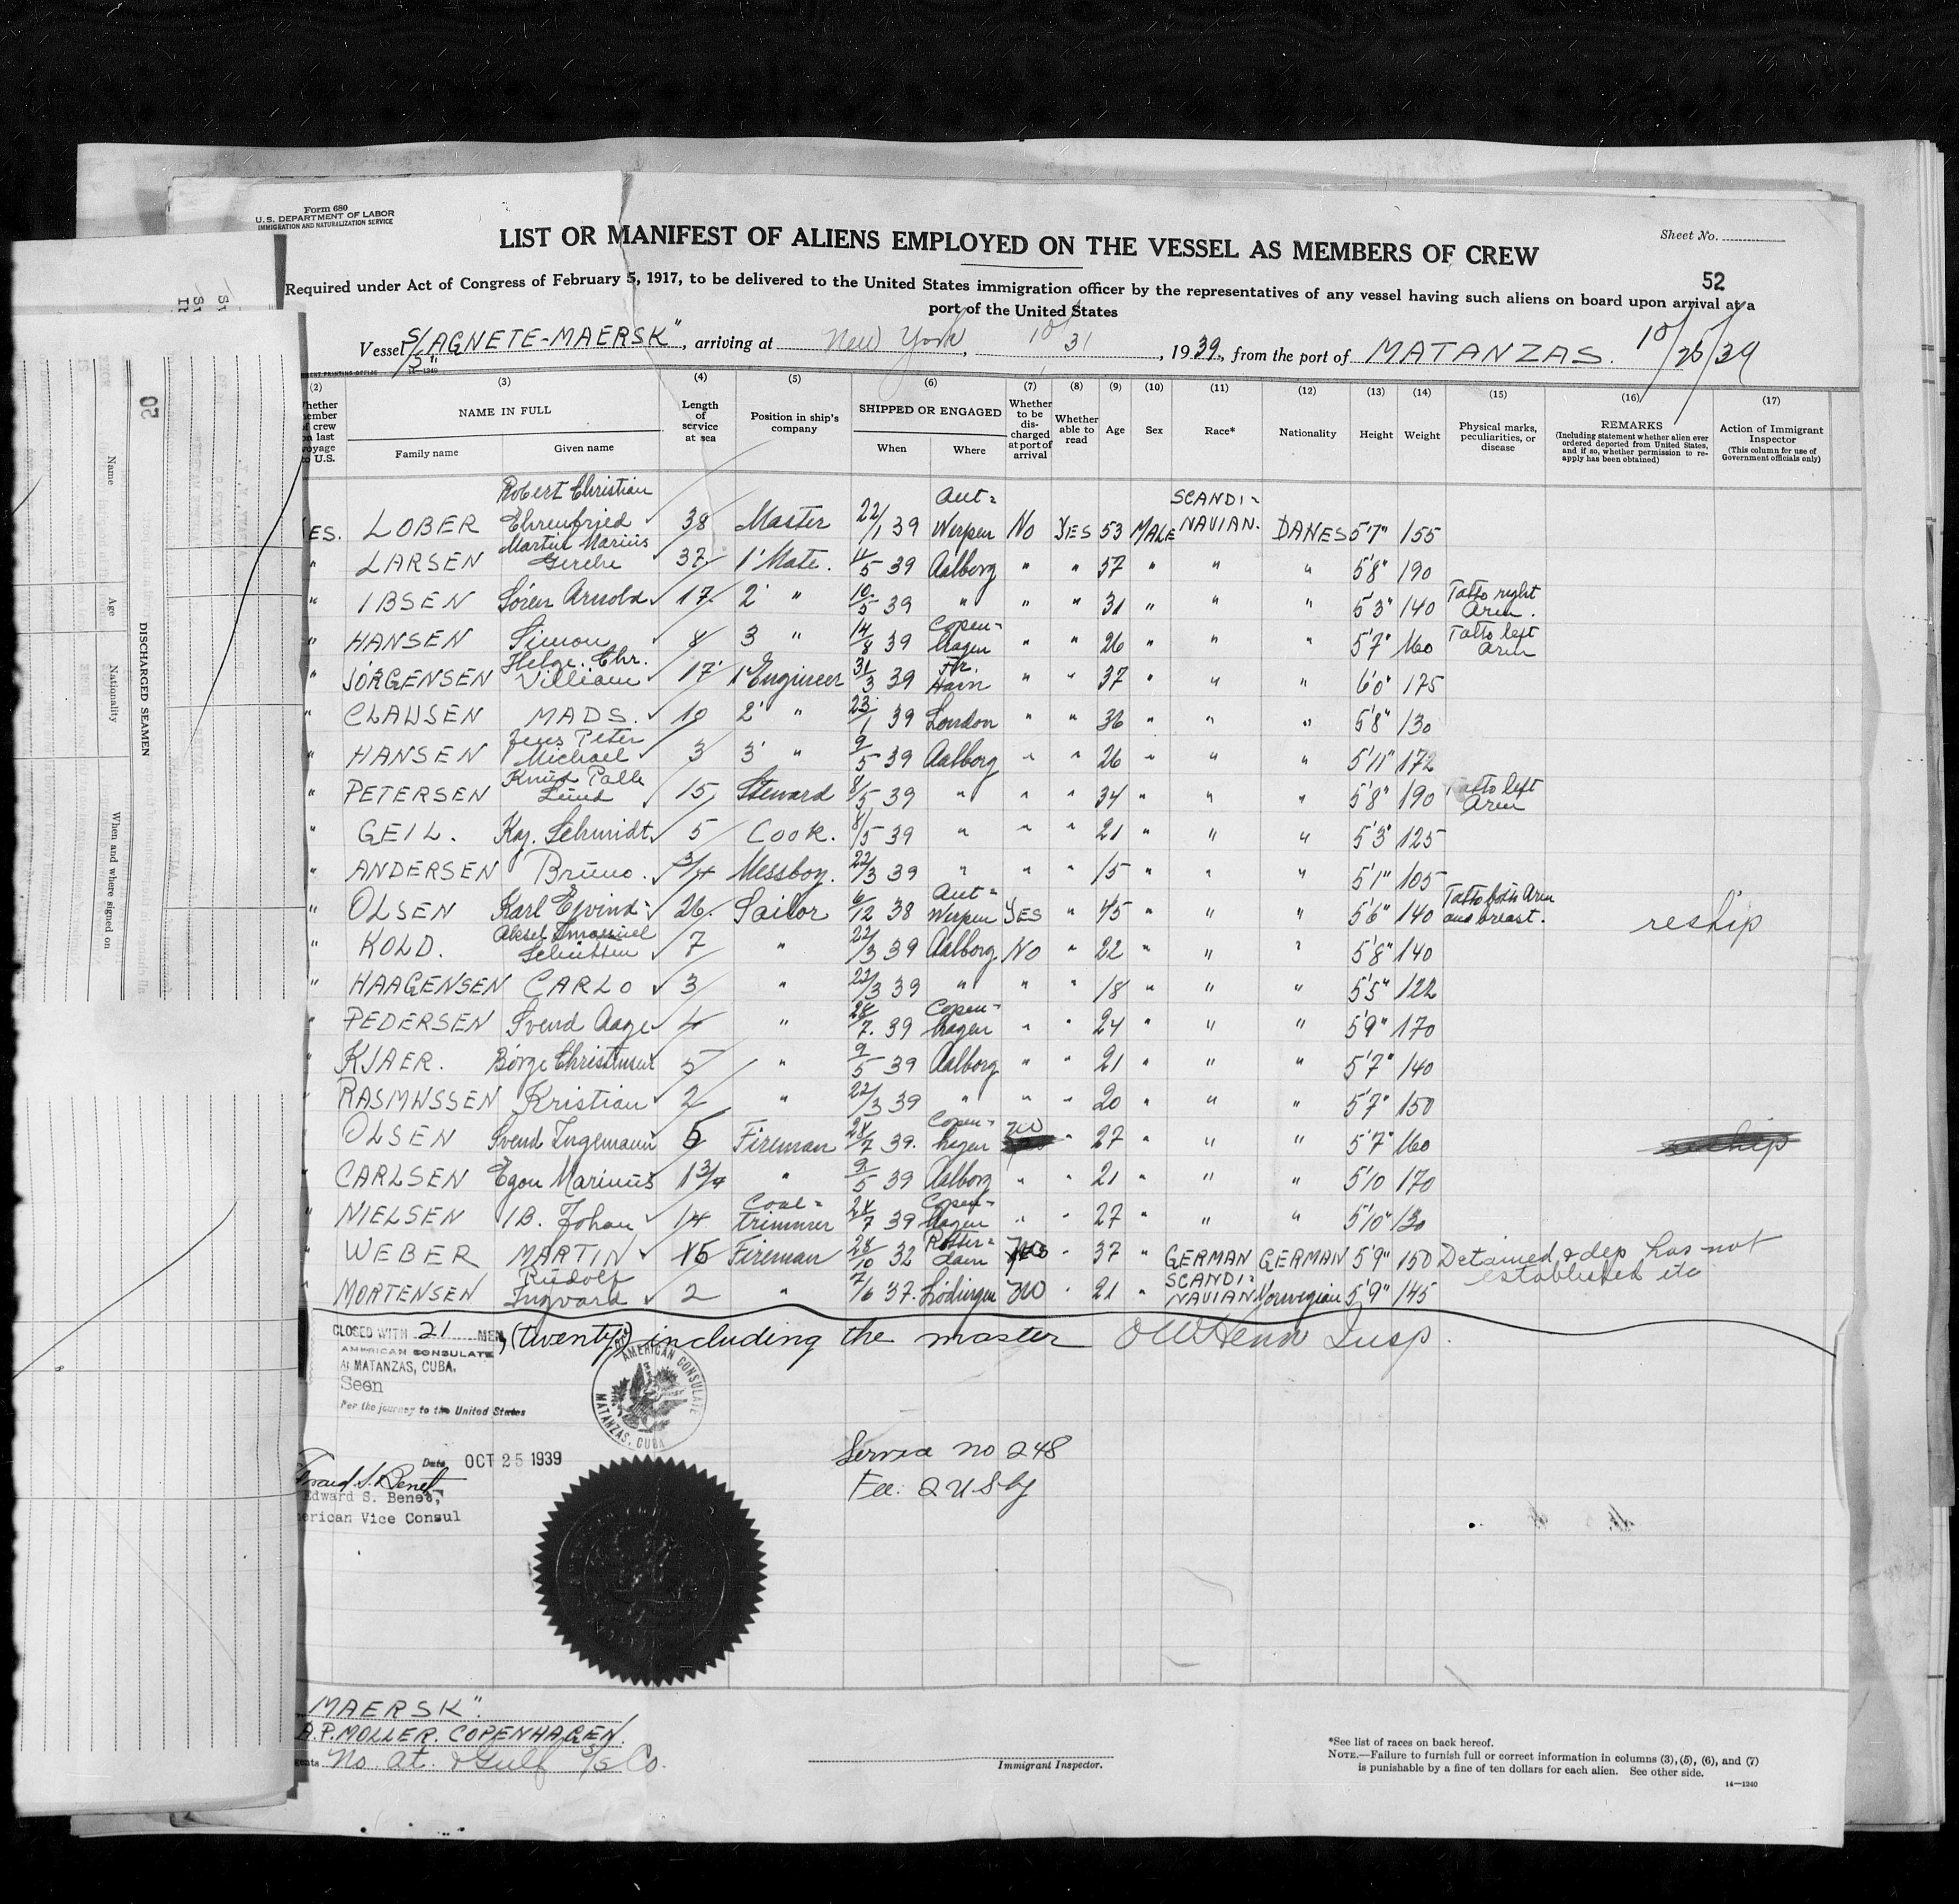 Form 680
U. S. DEPARTMENT OF LABOR
IMMIGRATION AND NATURALIZATION SERVICE
Sheet No.
LIST OR MANIFEST OF ALIENS EMPLOYED ON THE VESSEL AS MEMBERS OF CREW
52
Required under Act of Congress of February 5, 1917, to be delivered to the United States immigration officer by the representatives of any vessel having such aliens on board upon arrival at a
port of the United States
Vessel S/S "AGNETE-MAERSK", arriving at New York, 10/31, 1939, from the port of MATANZAS. 10/25/39
(2) (3) (4) (5) (6) (7) (8) (9) (10) (11) (12) (13) (14) (15) (16) (17)
NAME IN FULL
Family name Given name
Length of service at sea
Position in ship's company
SHIPPED OR ENGAGED
When Where
Whether to be discharged at port of arrival
Whether able to read
Age
Sex
Race*
Nationality
Height
Weight
Physical marks, peculiarities, or disease
REMARKS
(Including statement whether alien ever ordered deported from United States, and if so, whether permission to reapply has been obtained)
Action of Immigrant Inspector
(This column for use of Government officials only)
ES. LOBER Robert Christian Ehrenfried 38 Master 22/1 39 Antwerpen No YES 53 MALE SCANDINAVIAN. DANES 5'7" 155
" LARSEN Martin Marius 37 1' Mate. 4/5 39 Aalborg " " 57 " " " 5'8" 190
" IBSEN Sören Arnold 17 2' " 10/5 39 " " " 31 " " " 5'3" 140 Tatto right Arm.
" HANSEN Simon 8 3 " 14/8 39 Copenhagen " " 26 " " " 5'7" 160 Tatto left Arm
" JÖRGENSEN Helge. Chr. Villiam 17 1' Engineer 31/3 39 Fr. Havn " " 37 " " " 6'0" 175
" CLAUSEN MADS. 10 2' " 23/1 39 London " " 36 " " " 5'8" 130
" HANSEN Jens Peter Michael 3 3' " 9/5 39 Aalborg " " 26 " " " 5'11" 172
" PETERSEN Knud Palle Lund 15 Steward 8/5 39 " " " 34 " " " 5'8" 190 Tatto left Arm
" GEIL. Kaj. Schmidt. 5 Cook. 8/5 39 " " " 21 " " " 5'3" 125
" ANDERSEN Bruno. 3/4 Messboy. 22/3 39 " " " 15 " " " 5'1" 105
" OLSEN Karl Ejvind 26. Sailor 6/12 38 Antwerpen YES " 45 " " " 5'6" 140 Tatto both Arm and breast. reship
" KOLD. Aksel 7 " 22/3 39 Aalborg No " 22 " " " 5'8" 140
" HAAGENSEN CARLO 3 " 22/3 39 " " " 18 " " " 5'5" 122
" PEDERSEN Svend Aage 4 " 28/7. 39 Copenhagen " " 24 " " " 5'9" 170
" KJAER. Börge Christmert 5 " 9/5 39 Aalborg " " 21 " " " 5'7" 140
" RASMUSSEN Kristian 2 " 22/3 39 " " " 20 " " " 5'7" 150
OLSEN Svend Ingemann 5 Fireman 28/7 39. Copenhagen no " 27 " " " 5'7" 160
" CARLSEN Egon Marinus 1 3/4 " 9/5 39 Aalborg " " 21 " " " 5'10 170
" NIELSEN IB. Johan 14 Coaltrimmer 28/7 39 Copenhagen " " 27 " " " 5'10" 130
" WEBER MARTIN 15 Fireman 28/10 32 Rotterdam " 37 " GERMAN GERMAN 5'9" 150 Detained & dep has not established etc
" MORTENSEN Rudolf Ingvard 2 " 7/6 37. Lödingen no " 21 " SCANDINAVIAN Norwegian 5'9" 145
CLOSED WITH 21 MEN, (twenty) including the master
AMERICAN CONSULATE
At MATANZAS, CUBA.
Seen
For the journey to the United States
AMERICAN CONSULATE
MATANZAS, CUBA
Date OCT 25 1939
Edward S. Benet,
erican Vice Consul
Service no 248
Fee. 2 U.S.
MAERSK".
A.P. MOLLER. COPENHAGEN.
No. at. & Gulf S/S Co.
Immigrant Inspector.
*See list of races on back hereof.
NOTE.—Failure to furnish full or correct information in columns (3), (5), (6), and (7)
is punishable by a fine of ten dollars for each alien. See other side.
14—1240
20
DISCHARGED SEAMEN
Name
Age
Nationality
When and where signed on